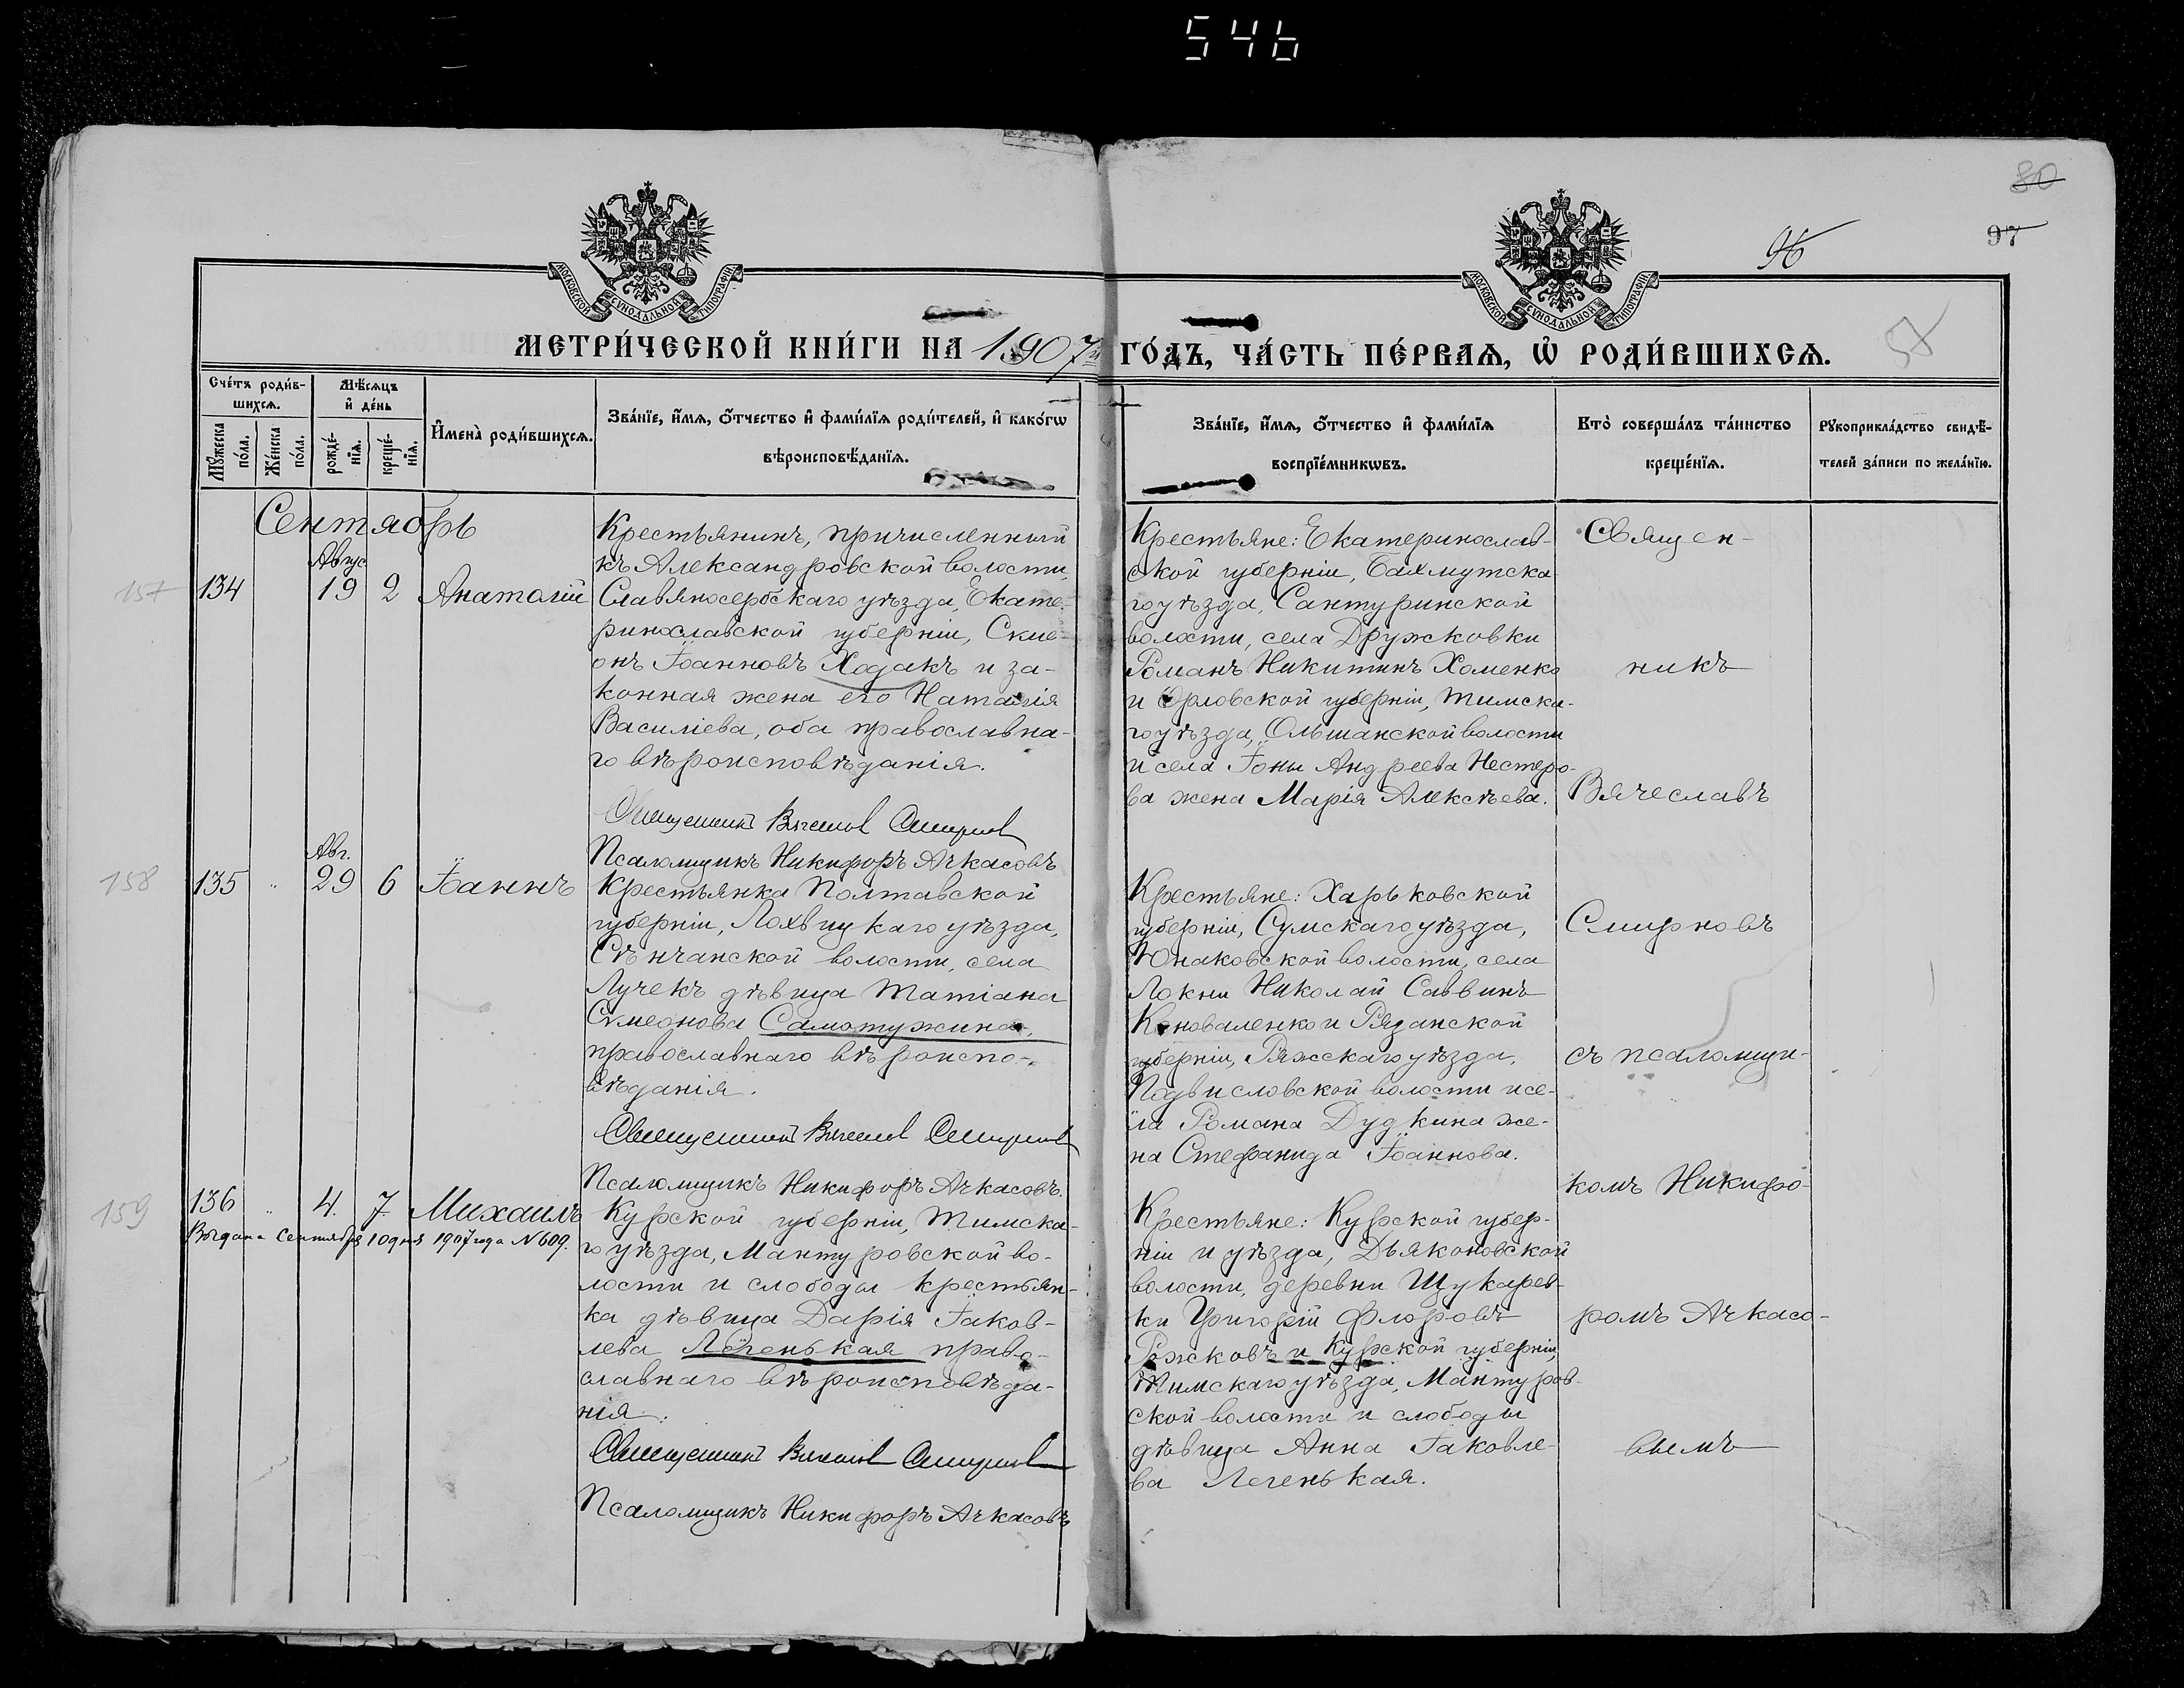 546
80
97
96
58
МОСКОВСКОЙ СѴНОДАЛЬНОЙ ТИПОГРАФІИ
МОСКОВСКОЙ СѴНОДАЛЬНОЙ ТИПОГРАФІИ
МЕТРИ́ЧЕСКОЙ КНИ́ГИ НА 1907й ГО́ДЪ, ЧА́СТЬ ПЕ́РВАѦ, Ѡ҆ РОДИ́ВШИХСѦ.
Сче́тъ роди́в-
шихсѧ.
Мꙋ́жеска по́ла.
Же́нска по́ла.
Мѣ́сѧцъ
и҆ де́нь
рожде́-
нїѧ.
креще́-
нїѧ.
И҆мена̀ роди́вшихсѧ.
Зва́нїе, и҆́мѧ, ѻ҆́тчество и҆ фами́лїѧ роди́телей, и҆ како́гѡ
вѣроисповѣ́данїѧ.
Зва́нїе, и҆́мѧ, ѻ҆́тчество и҆ фами́лїѧ
воспрїе́мникѡвъ.
Кто̀ соверша́лъ та́инство
креще́нїѧ.
Рꙋкоприкла́дство свидѣ́-
телей за́писи по жела́нїю.
Сентябрь
157 134 Авгус 19 2 Анатолій
Крестьянинъ, причисленный
къ Александровской волости,
Славяносербскаго уѣзда, Екате-
ринославской губерніи, Симе-
онъ Іоанновъ Ходакъ и за-
конная жена его Наталія
Василіева, оба православна-
го вѣроисповѣданія.
Священникъ Вячеслав Смирнов
Псаломщикъ Никифоръ Ачкасовъ
Крестьяне: Екатеринослав-
ской губерніи, Бахмутска-
го уѣзда, Сантуринской
волости, села Дружковки
Романъ Никитинъ Хоменко
и Орловской губерніи, Тимска-
го уѣзда, Ольшанской волости
и села Іоны Андреева Нестеро-
ва жена Марія Алексѣева.
158 135 " Авг. 29 6 Іоаннъ
Крестьянка Полтавской
губерніи, Лохвицкаго уѣзда,
Сѣнчанской волости, села
Лучекъ дѣвица Татіана
Самотужина,
православнаго вѣроиспо-
вѣданія.
Священникъ Вячеслав Смирнов
Псаломщикъ Никифоръ Ачкасовъ.
Крестьяне: Харьковской
губерніи, Сумскаго уѣзда,
Юнаковской волости, села
Локни Николай Саввинъ
Коноваленко и Рязанской
губерніи, Ряжскаго уѣзда,
Подвисловской волости и се-
ла Романа Дудкина же-
на Стефанида Іоаннова.
159 136 " 4. 7. Михаилъ
Выдана сентября 10 дня 1907 года № 609.
Курской губерніи, Тимска-
го уѣзда, Мантуровской во-
лости и слободы крестьян-
ка дѣвица Дарія Іаков-
лева Легенькая право-
славнаго вѣроисповѣда-
нія.
Священникъ Вячеслав Смирнов
Псаломщикъ Никифоръ Ачкасовъ
Крестьяне: Курской губер-
ніи и уѣзда, Дьяконовской
волости, деревни Щукарев-
ки Григорій Флоровъ
Рожковъ и Курской губерніи,
Тимскаго уѣзда, Мантуров-
ской волости и слободы
дѣвица Анна Іаковле-
ва Легенькая.
Священ-
никъ
Вячеславъ
Смирновъ
съ псаломщи-
комъ Никифо-
ромъ Ачкасо-
вымъ